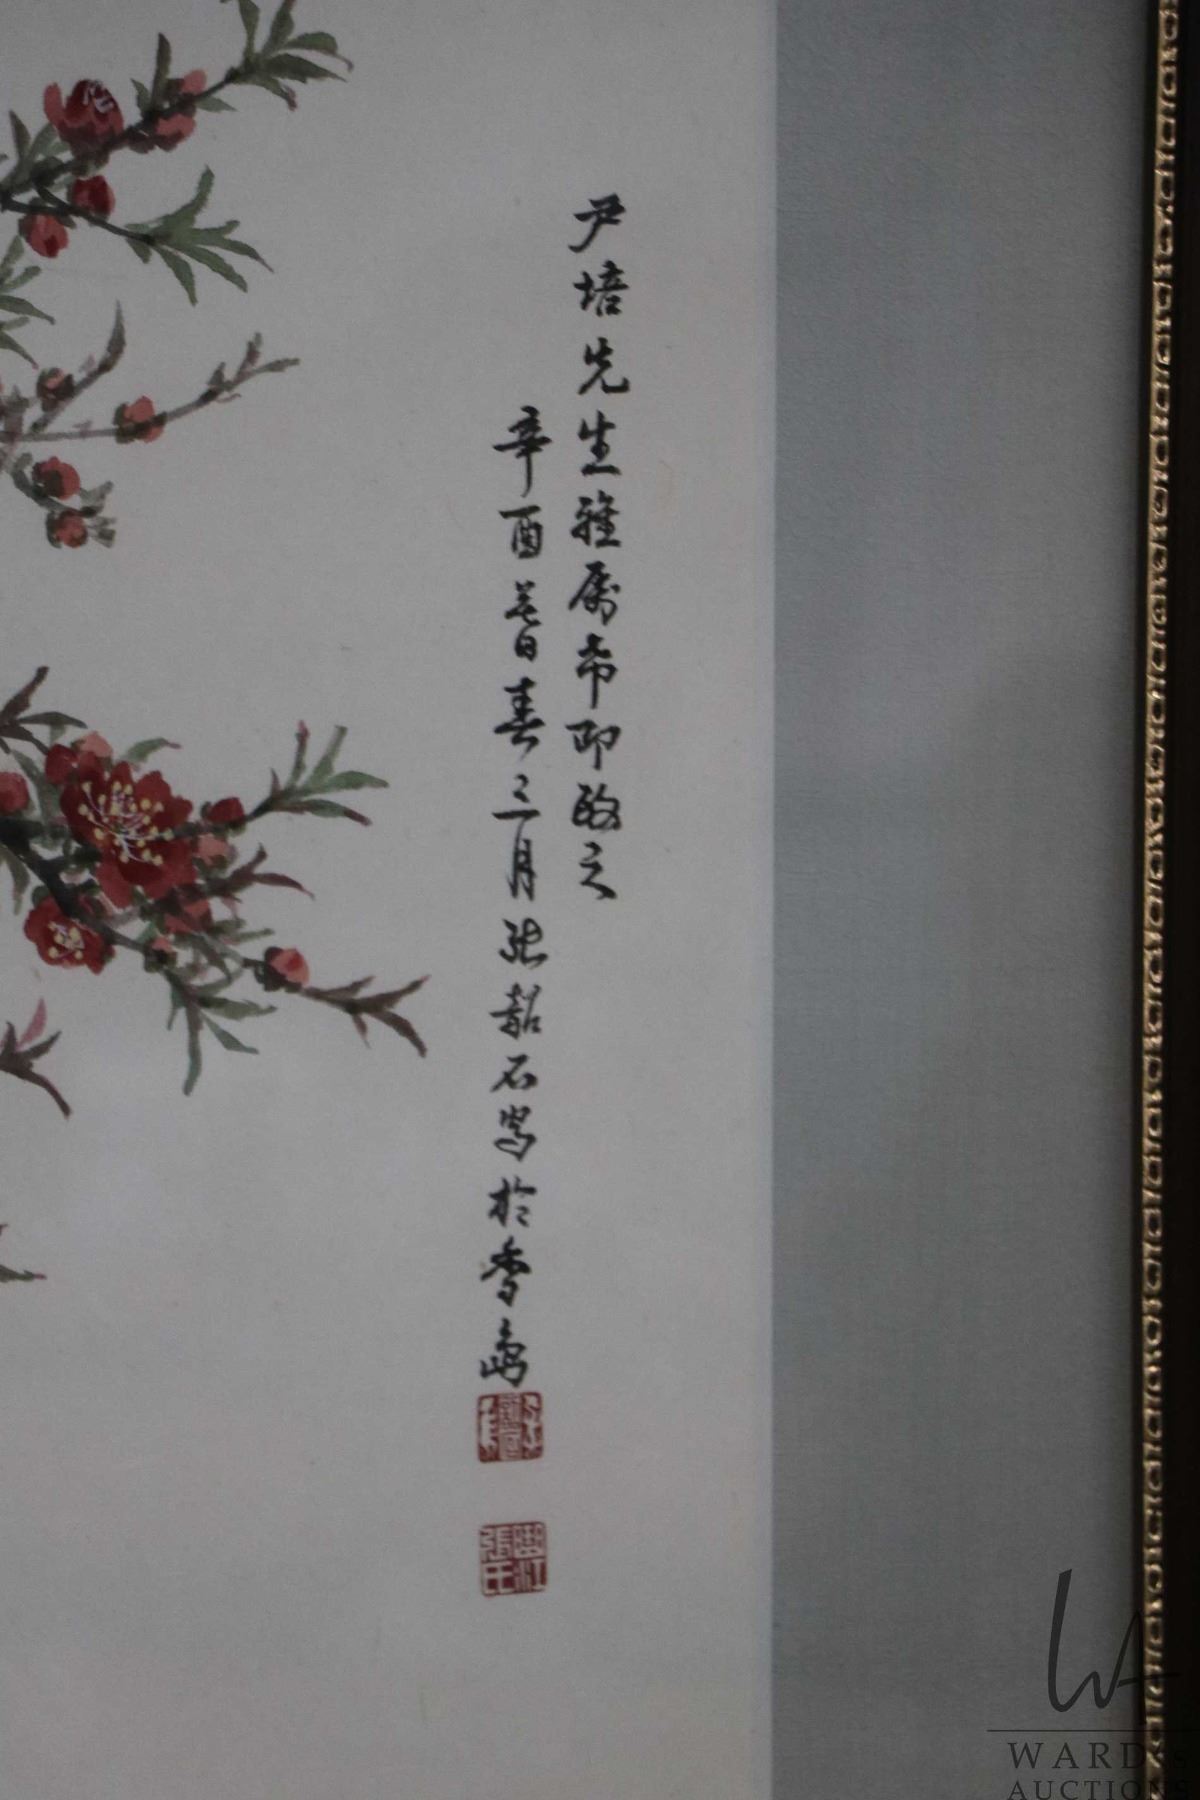 尹培先生雅属希即政之
辛酉暮春三月張韶石写於香島
張氏
WARD'S
AUCTIONS